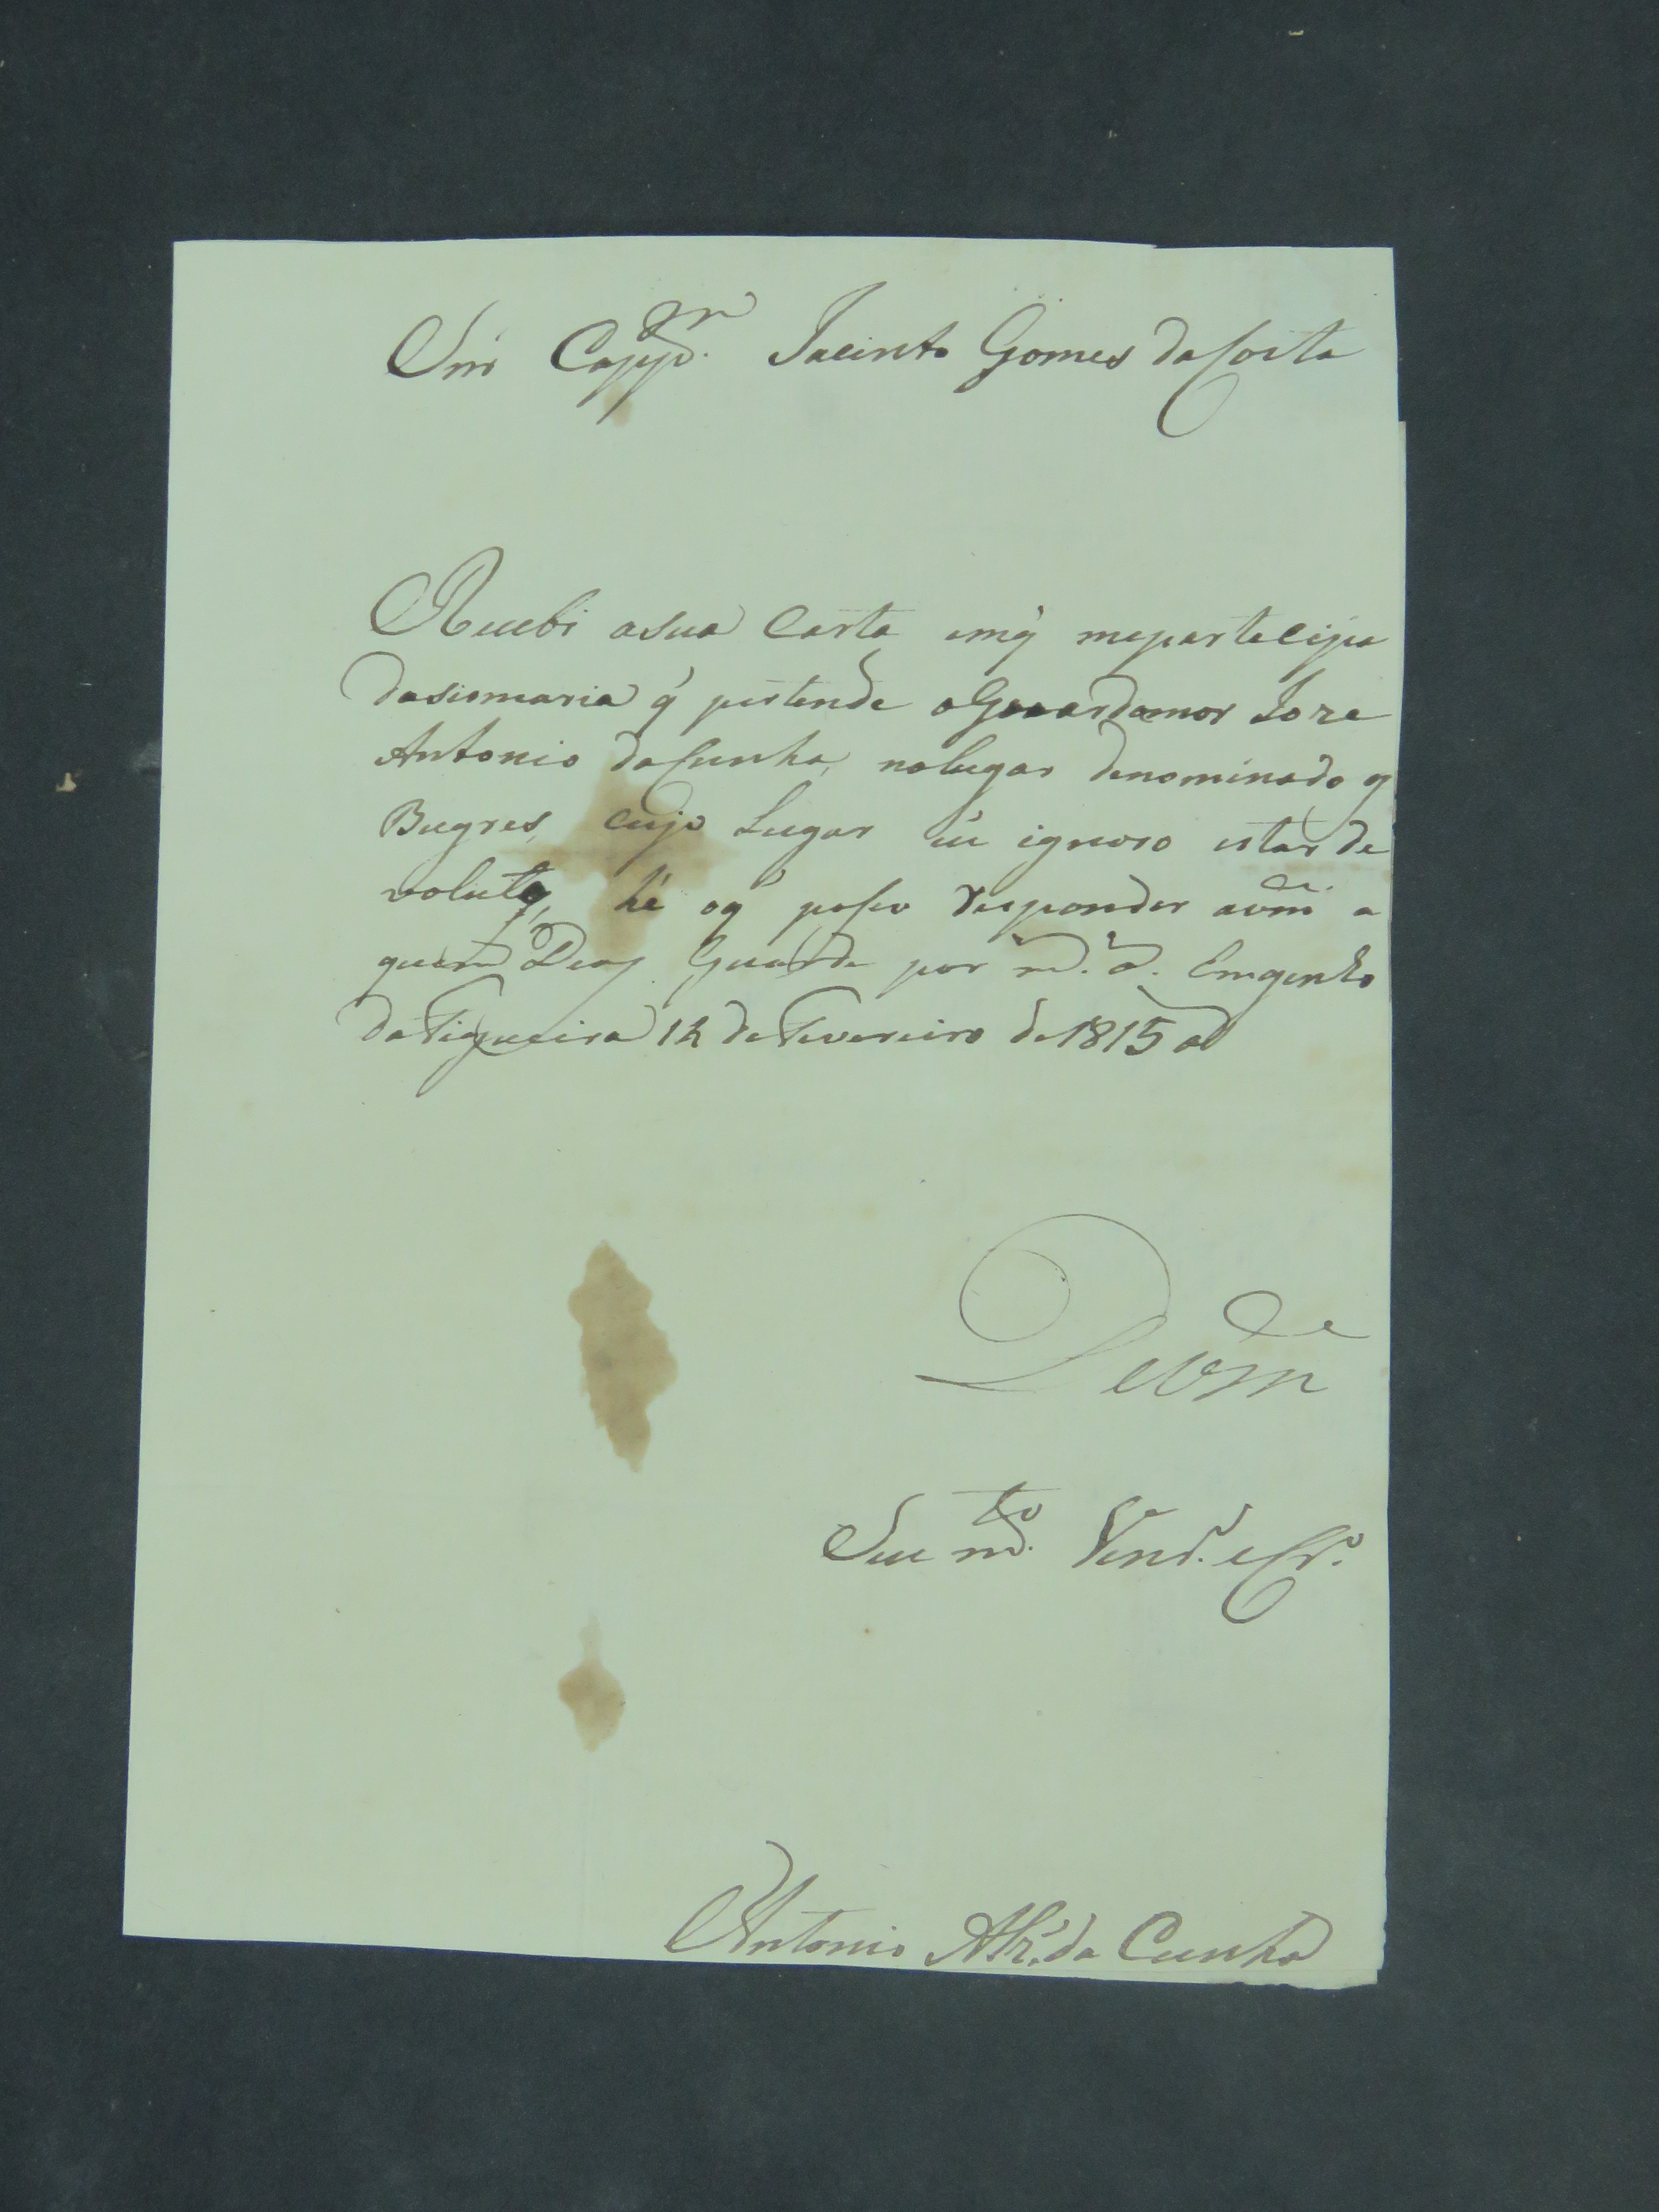 Snr Cappm. Jacinto Gomes da Costa
Recebi asua Carta emq̃ mepartecipa
dasismaria q̃ pertende oGuardamor Joze
Antonio daCunha, nolugar denominado os
Bugres, cujo Lugar eu ignoro estar de
voluto, hé oq̃ poso Responder avmce. a
quem Deos Guarde por ms. as. Emgenho
daFigueira 12 deFevereiro de1815 as
DeVmce
Seu mto. Venor. eCro.
Antonio Alz'. da Cunha